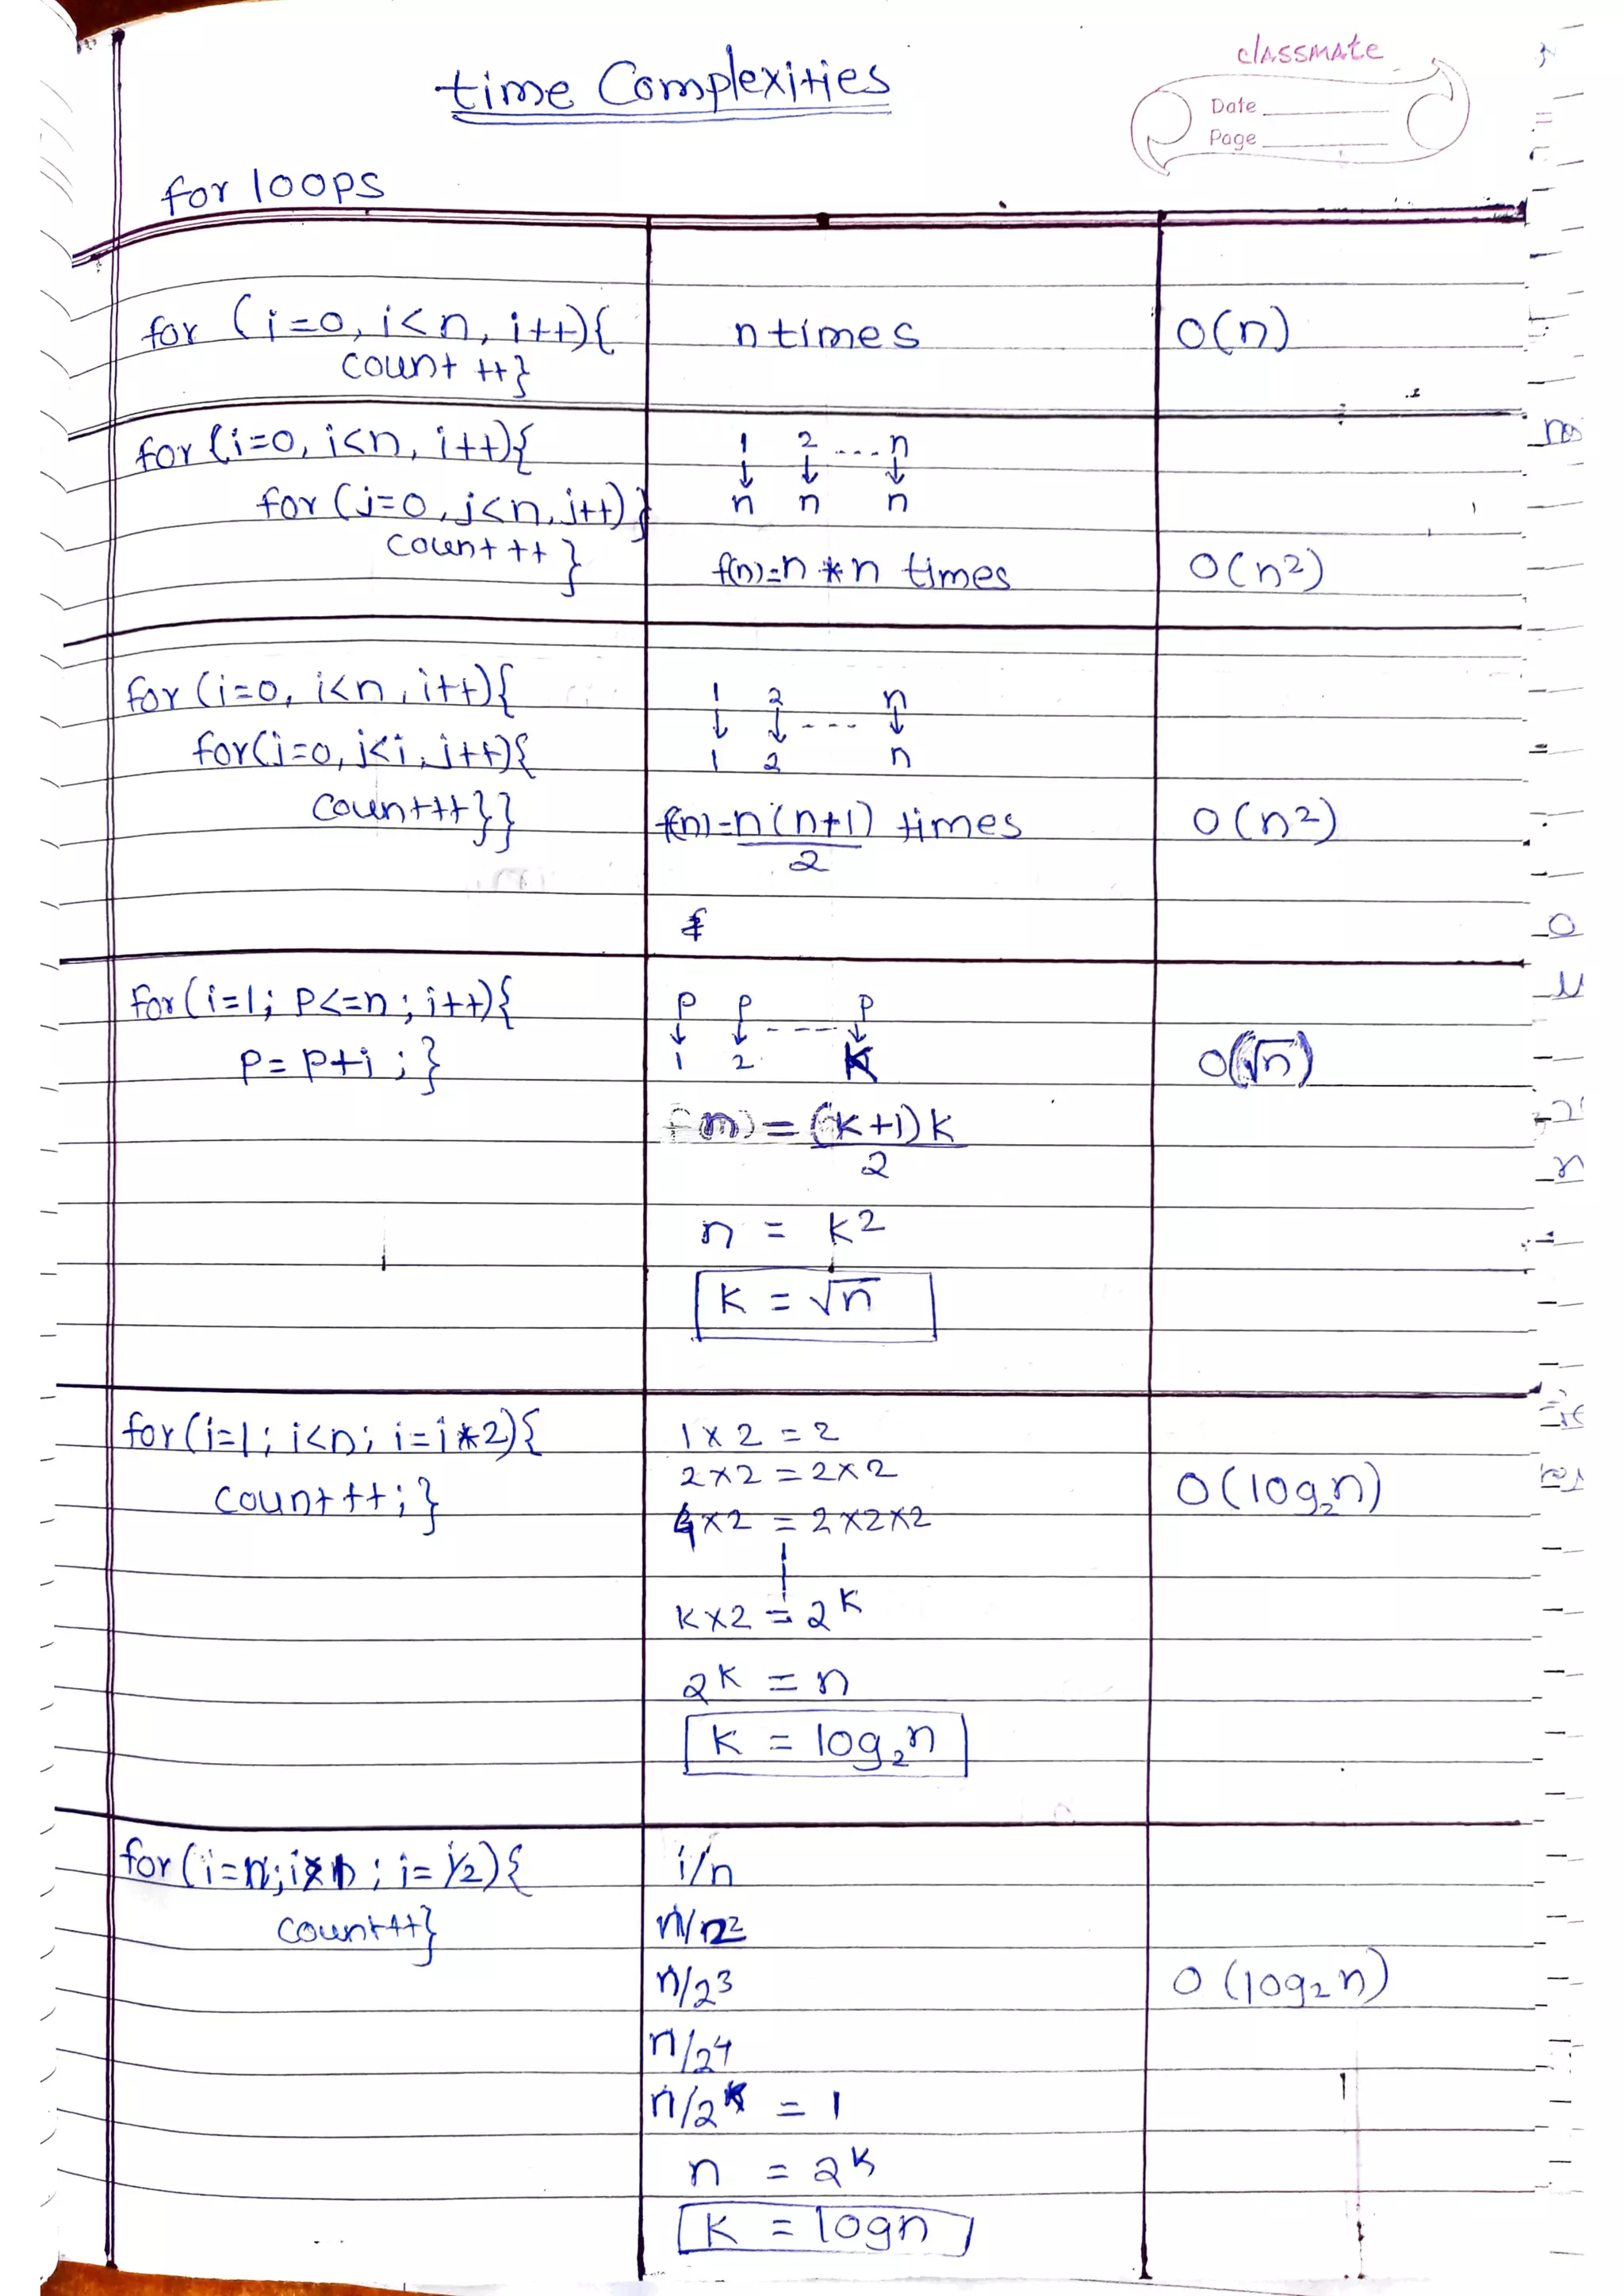 classmate
Date
Page
time Complexities
for loops
for (i=0, i<n, i++){
count ++}
n times
O(n)
for (i=0, i<n, i++){
for (j=0, j<n, j++)}
count ++ }
1 2 .... n
↓ ↓ ↓
n n n
f(n)=n * n times
O(n²)
for (i=0, i<n, i++){
for(j=0, j<i, j++){
count++}}
1 2 n
↓ ↓ --- ↓
1 2 n
f(n)=n(n+1)/2 times
O(n²)
for(i=1; P<=n; i++){
P= P+i ; }
P P P
↓ ↓ ---- ↓
1 2 K
f(n) = (K+1)K/2
n = K²
K = √n
O(√n)
for(i=1; i<n; i=i*2){
count ++;}
1 x 2 = 2
2x2 = 2x2
4x2 = 2x2x2
Kx2 = 2ᴷ
2ᴷ = n
K = log₂n
O(log₂n)
for(i=n; i ; i= i/2){
count++}
i/n
n/2²
n/2³
n/2⁴
n/2ᴷ = 1
n = 2ᴷ
K = logn
O (log₂n)